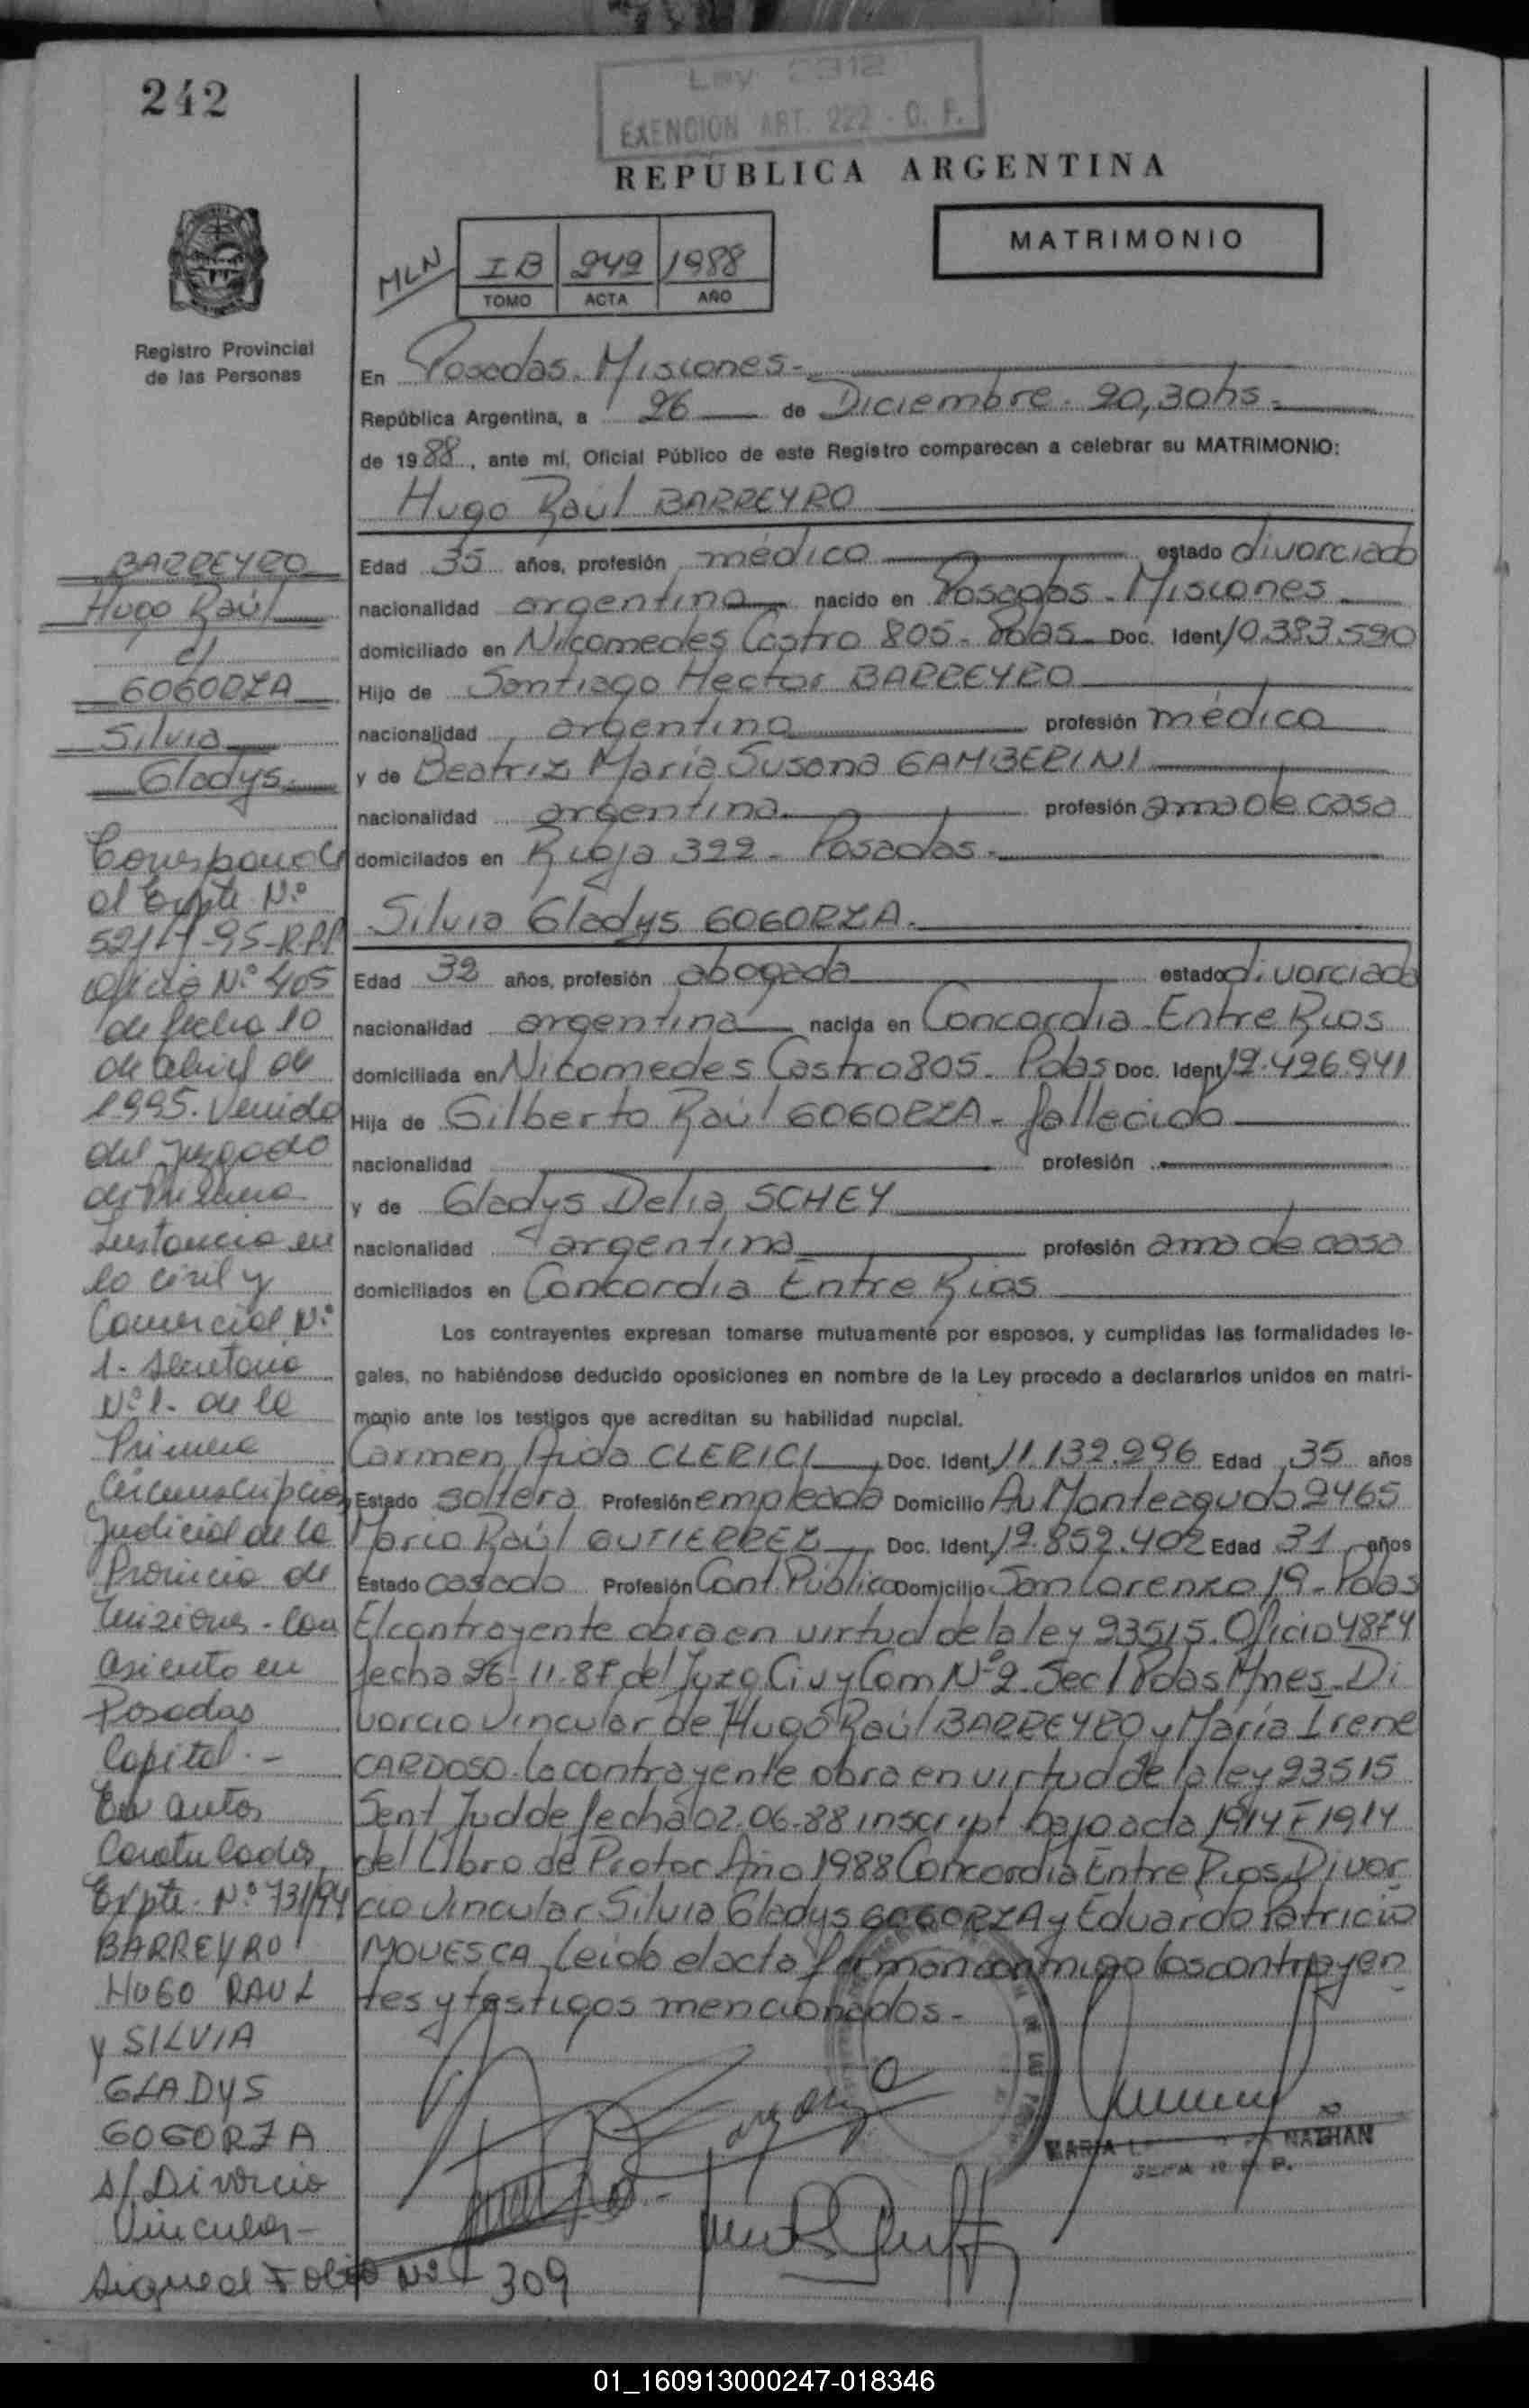 242
Ley 2312
EXENCION ART. 222 - C. F.
REPUBLICA ARGENTINA
MATRIMONIO
MLN
I B 242 1988
TOMO ACTA AÑO
Registro Provincial
de las Personas
En Posadas. Misiones.
República Argentina, a 26 de Diciembre. 20,30hs.
de 1988, ante mí, Oficial Público de este Registro comparecen a celebrar su MATRIMONIO:
Hugo Raúl BARREYRO
Edad 35 años, profesión médico estado divorciado
nacionalidad argentina nacido en Posadas - Misiones
domiciliado en Nicomedes Castro 805 - Pdas Doc. Ident 10.383.590
Hijo de Santiago Hector BARREYRO
nacionalidad argentina profesión médico
y de Beatriz María Susana GAMBERINI
nacionalidad argentina profesión ama de casa
domicilados en Rioja 322 - Posadas.
Silvia Gladys GOGORZA.
Edad 32 años, profesión abogada estado divorciada
nacionalidad argentina nacida en Concordia Entre Rios
domiciliada en Nicomedes Castro 805 - Pdas Doc. Ident 12.426.941
Hija de Gilberto Raúl GOGORZA - fallecido
nacionalidad profesión
y de Gladys Delia SCHEY
nacionalidad argentina profesión ama de casa
domiciliados en Concordia Entre Rios
Los contrayentes expresan tomarse mutuamente por esposos, y cumplidas las formalidades le-
gales, no habiéndose deducido oposiciones en nombre de la Ley procedo a declararlos unidos en matri-
monio ante los testigos que acreditan su habilidad nupcial.
Carmen Aida CLERICI Doc. Ident 11.132.296 Edad 35 años
Estado soltera Profesión empleada Domicilio Av. Monteagudo 2465
Mario Raúl GUTIERREZ Doc. Ident 12.852.402 Edad 31 años
Estado casado Profesión Cont. Público Domicilio San Lorenzo 19 - Pdas
El contrayente obra en virtud de la ley 23515. Oficio 4874
fecha 26-11-87 del Juzg. Civ y Com Nº 2. Sec 1 Pdas Mnes. Di
vorcio Vincular de Hugo Raúl BARREYRO y María Irene
CARDOSO. La contrayente obra en virtud de la ley 23515
Sent Jud de fecha 02.06.88 inscript bajo acta 1914 F 1914
del Libro de Protoc Año 1988 Concordia Entre Rios. Divor
cio Vincular Silvia Gladys GOGORZA y Eduardo Patricio
MOUESCA. Leido el acta firman conmigo los contrayen
tes y testigos mencionados.
MARIA NATHAN
BARREYRO
Hugo Raúl
c/
GOGORZA
Silvia
Gladys.
Corresponde
al Expte Nº
-95-R.P.P.
Oficio Nº 405
de fecha 10
de abril de
1995. Venido
del Juzgado
de Primera
Instancia en
lo civil y
Comercial Nº
1- Secretaria
Nº 1- de la
Primera
Circunscripcion
Judicial de la
Provincia de
Misiones - con
asiento en
Posadas
Capital. -
En autos
Caratulados,
Expte. Nº 731/94
BARREYRO
HUGO RAUL
y SILVIA
GLADYS
GOGORZA
s/ Divorcio
Vincular-
Sigue al Folio Nº 309
01_160913000247-018346